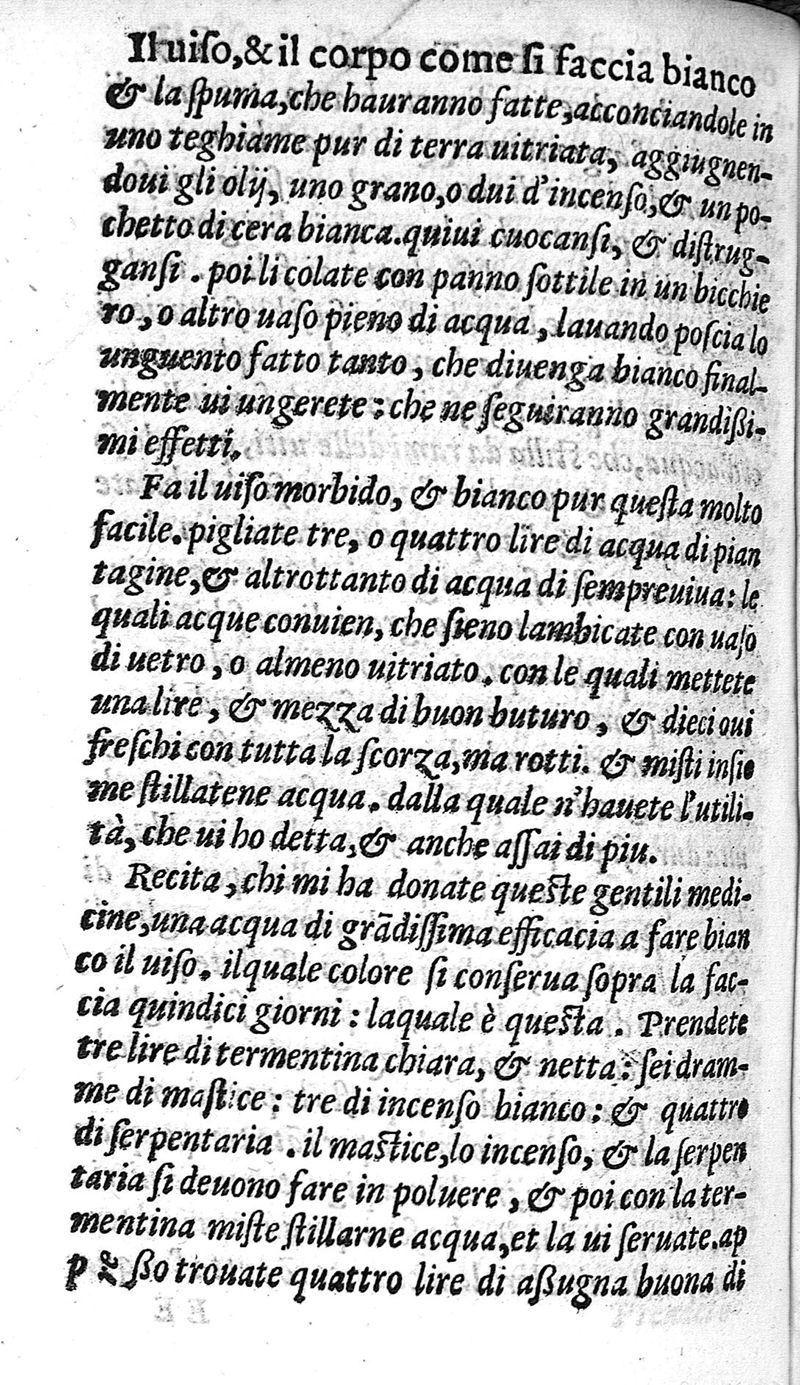 Il uiſo, & il corpo come ſi faccia bianco
& la ſpuma, che hauranno fatte, acconciandole in
uno teghiame pur di terra uitriata, aggiugnen-
doui gli olij, uno grano, o dui d'incenſo, & un po-
chetto di cera bianca. quiui cuocanſi, & diſtrug-
ganſi. poi li colate con panno ſottile in un bicchie
ro, o altro uaſo pieno di acqua, lauando poſcia lo
unguento fatto tanto, che diuenga bianco final-
mente ui ungerete: che ne ſeguiranno grandißi-
mi effetti.
Fa il uiſo morbido, & bianco pur queſta molto
facile. pigliate tre, o quattro lire di acqua di pian
tagine, & altrottanto di acqua di ſempreuiua: le
quali acque conuien, che ſieno lambicate con uaſo
di uetro, o almeno uitriato. con le quali mettete
una lire, & mezza di buon buturo, & dieci oui
freſchi con tutta la ſcorza, ma rotti. & miſti inſie
me ſtillatene acqua. dalla quale n'hauete l'utili-
tà, che ui ho detta, & anche aſſai di piu.
Recita, chi mi ha donate queſte gentili medi-
cine, una acqua di grãdiſſima efficacia a fare bian
co il uiſo. ilquale colore ſi conſerua ſopra la fac-
cia quindici giorni: laquale è queſta. Prendete
tre lire di termentina chiara, & netta: ſei dram-
me di maſtice: tre di incenſo bianco: & quattro
di ſerpentaria. il maſtice, lo incenſo, & la ſerpen
taria ſi deuono fare in poluere, & poi con la ter-
mentina miſte ſtillarne acqua, et la ui ſeruate. ap
ßo trouate quattro lire di aßugna buona di